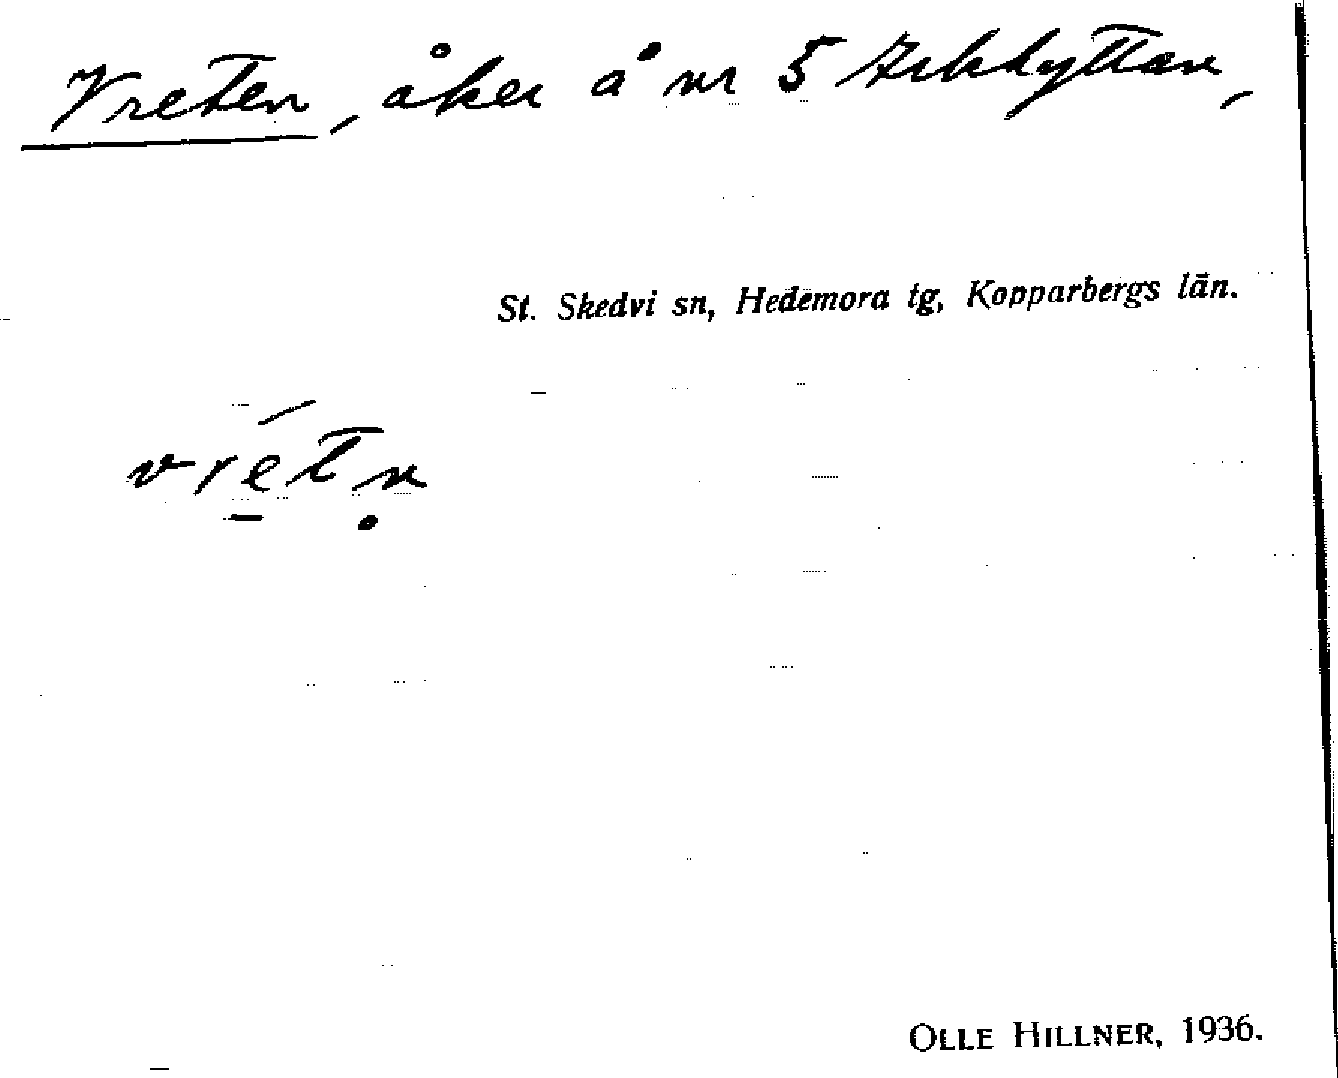 Vreten, åker å nr 5
St. Skedvi sn, Hedemora tg, Kopparbergs län.
vrétn
OLLE HILLNER, 1936.